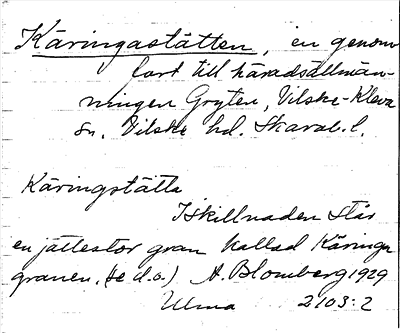 Käringastätten, en genom
fart till häradsallmän-
ningen Gryten, Vilske-Kleva
sn. Vilske hd. Skarab.l.
Käringstätta
I skillnaden står
en jättestor gran kallad Käringa
granen. (se d.o.) A. Blomberg 1929
Ulma 2103:2